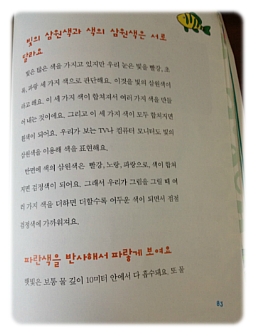 빛의 삼원색과 색의 삼원색은 서로
달라요
빛은 많은 색을 가지고 있지만 우리 눈은 빛을 빨강, 초
록, 파랑 세 가지 색으로 판단해요. 이것을 빛의 삼원색이
라고 해요. 이 세 가지 색이 합쳐져서 여러 가지 색을 만들
어 내는 것이에요. 그리고 이 세 가지 색이 모두 합쳐지면
흰색이 되어요. 우리가 보는 TV나 컴퓨터 모니터도 빛의
삼원색을 이용해 색을 표현해요.
반면에 색의 삼원색은 빨강, 노랑, 파랑으로, 색이 합쳐
지면 검정색이 되어요. 그래서 우리가 그림을 그릴 때 여
러 가지 색을 더하면 더할수록 어두운 색이 되면서 점점
검정색에 가까워져요.
파란색을 반사해서 파랗게 보여요
햇빛은 보통 물 깊이 10미터 안에서 다 흡수돼요. 또 물
83